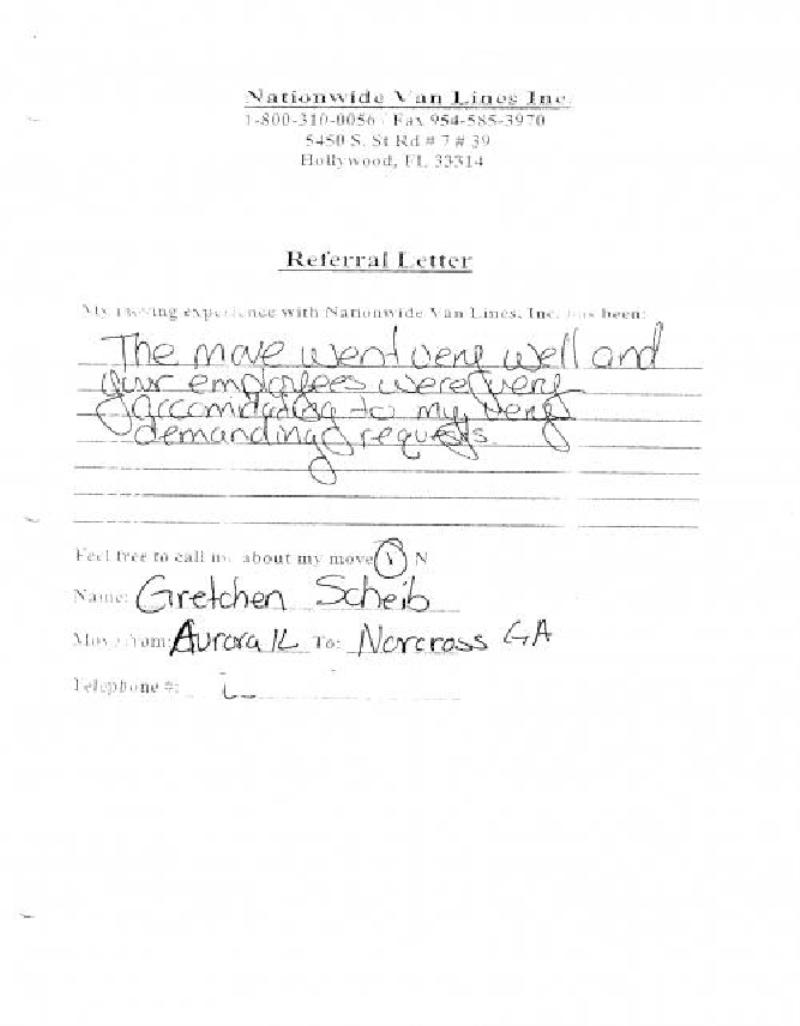 Nationwide Van Lines Inc.
1-800-310-0056 / Fax 954-585-3970
5450 S. St Rd # 7 # 39
Hollywood, FL 33314
Referral Letter
My moving experience with Nationwide Van Lines, Inc. has been:
The move went very well and
your employees were very
accomidating to my very
demanding requests.
Feel free to call me about my move Y N
Name: Gretchen Scheib
Move From: Aurora IL To: Norcross GA
Telephone #: